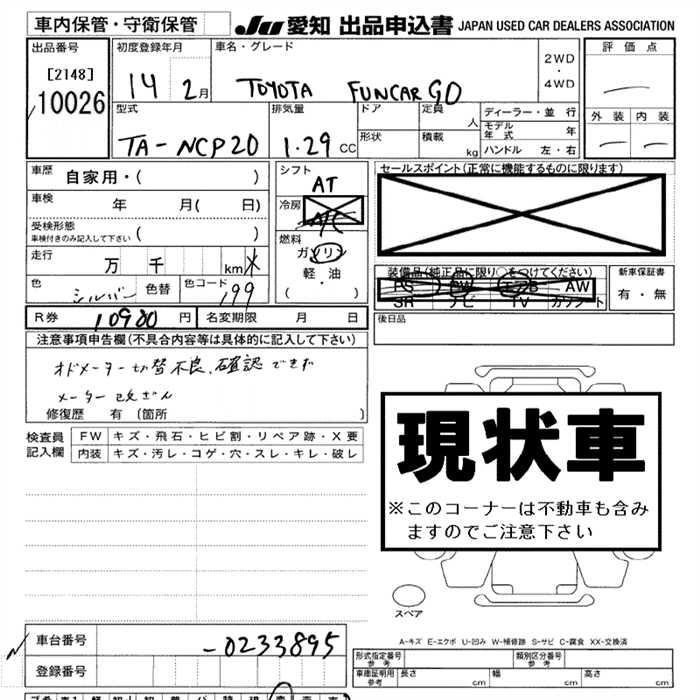 車内保管・守衛保管
JU 愛知 出品申込書 JAPAN USED CAR DEALERS ASSOCIATION
出品番号
[2148]
10026
初度登録年月
14 2月
車名・グレード
TOYOTA FUNCARGO
2WD
・
4WD
評価点
外装 内装
型式
TA-NCP20
排気量
1.29 CC
ドア
定員
人
形状
積載
kg
ディーラー・並行
モデル年式 年
ハンドル 左・右
車歴
自家用・( )
車検
年 月( 日)
受検形態
車検付きのみ記入して下さい ( )
走行
万 千 km
色
シルバー
色替
色コード
199
シフト
AT
冷房
A/C
燃料
ガソリン
軽・油
( ・ )
セールスポイント(正常に機能するものに限ります)
装備品(純正品に限り○をつけてください)
PS PW エアB AW
SR ナビ TV カワシート
新車保証書
有・無
後日品
R券 10980 円
名変期限 月 日
注意事項申告欄(不具合内容等は具体的に記入して下さい)
オドメーター切替不良、確認できず
メーター改ざん
修復歴 有(箇所 )
検査員記入欄
FW キズ・飛石・ヒビ割・リペア跡・X要
内装 キズ・汚レ・コゲ・穴・スレ・キレ・破レ
現状車
※このコーナーは不動車も含み
ますのでご注意下さい
スペア
A-キズ E-エクボ U-凹み W-補修跡 S-サビ C-腐食 XX-交換済
車台番号
-0233895
登録番号
形式指定番号
参考
類別区分番号
参考
車庫証明用
参考
長さ cm
幅 cm
高さ cm